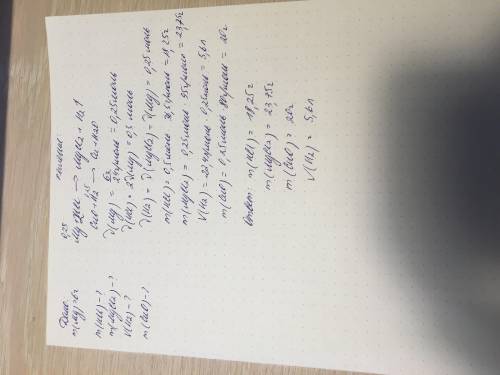 Дано:
m(Mg)=6г
m(HCl)-?
m(MgCl2)-?
V(H2)-?
m(CuO)-?
Решение:
0,25
Mg+2HCl → MgCl2 + H2↑
0,25
CuO+H2 → Cu+H2O
ν(Mg) = 6г / 24г/моль = 0,25моль
ν(HCl) = 2ν(Mg) = 0,5 моль
ν(H2) = ν(MgCl2) = ν(Mg) = 0,25 моль
m(HCl) = 0,5моль · 36,5г/моль = 18,25г
m(MgCl2) = 0,25моль · 95г/моль = 23,75г
V(H2) = 22,4л/моль · 0,25моль = 5,6л
m(CuO) = 0,25моль · 80г/моль = 20г
Ответ: m(HCl) = 18,25г
m(MgCl2) = 23,75г
m(CuO) = 20г
V(H2) = 5,6л